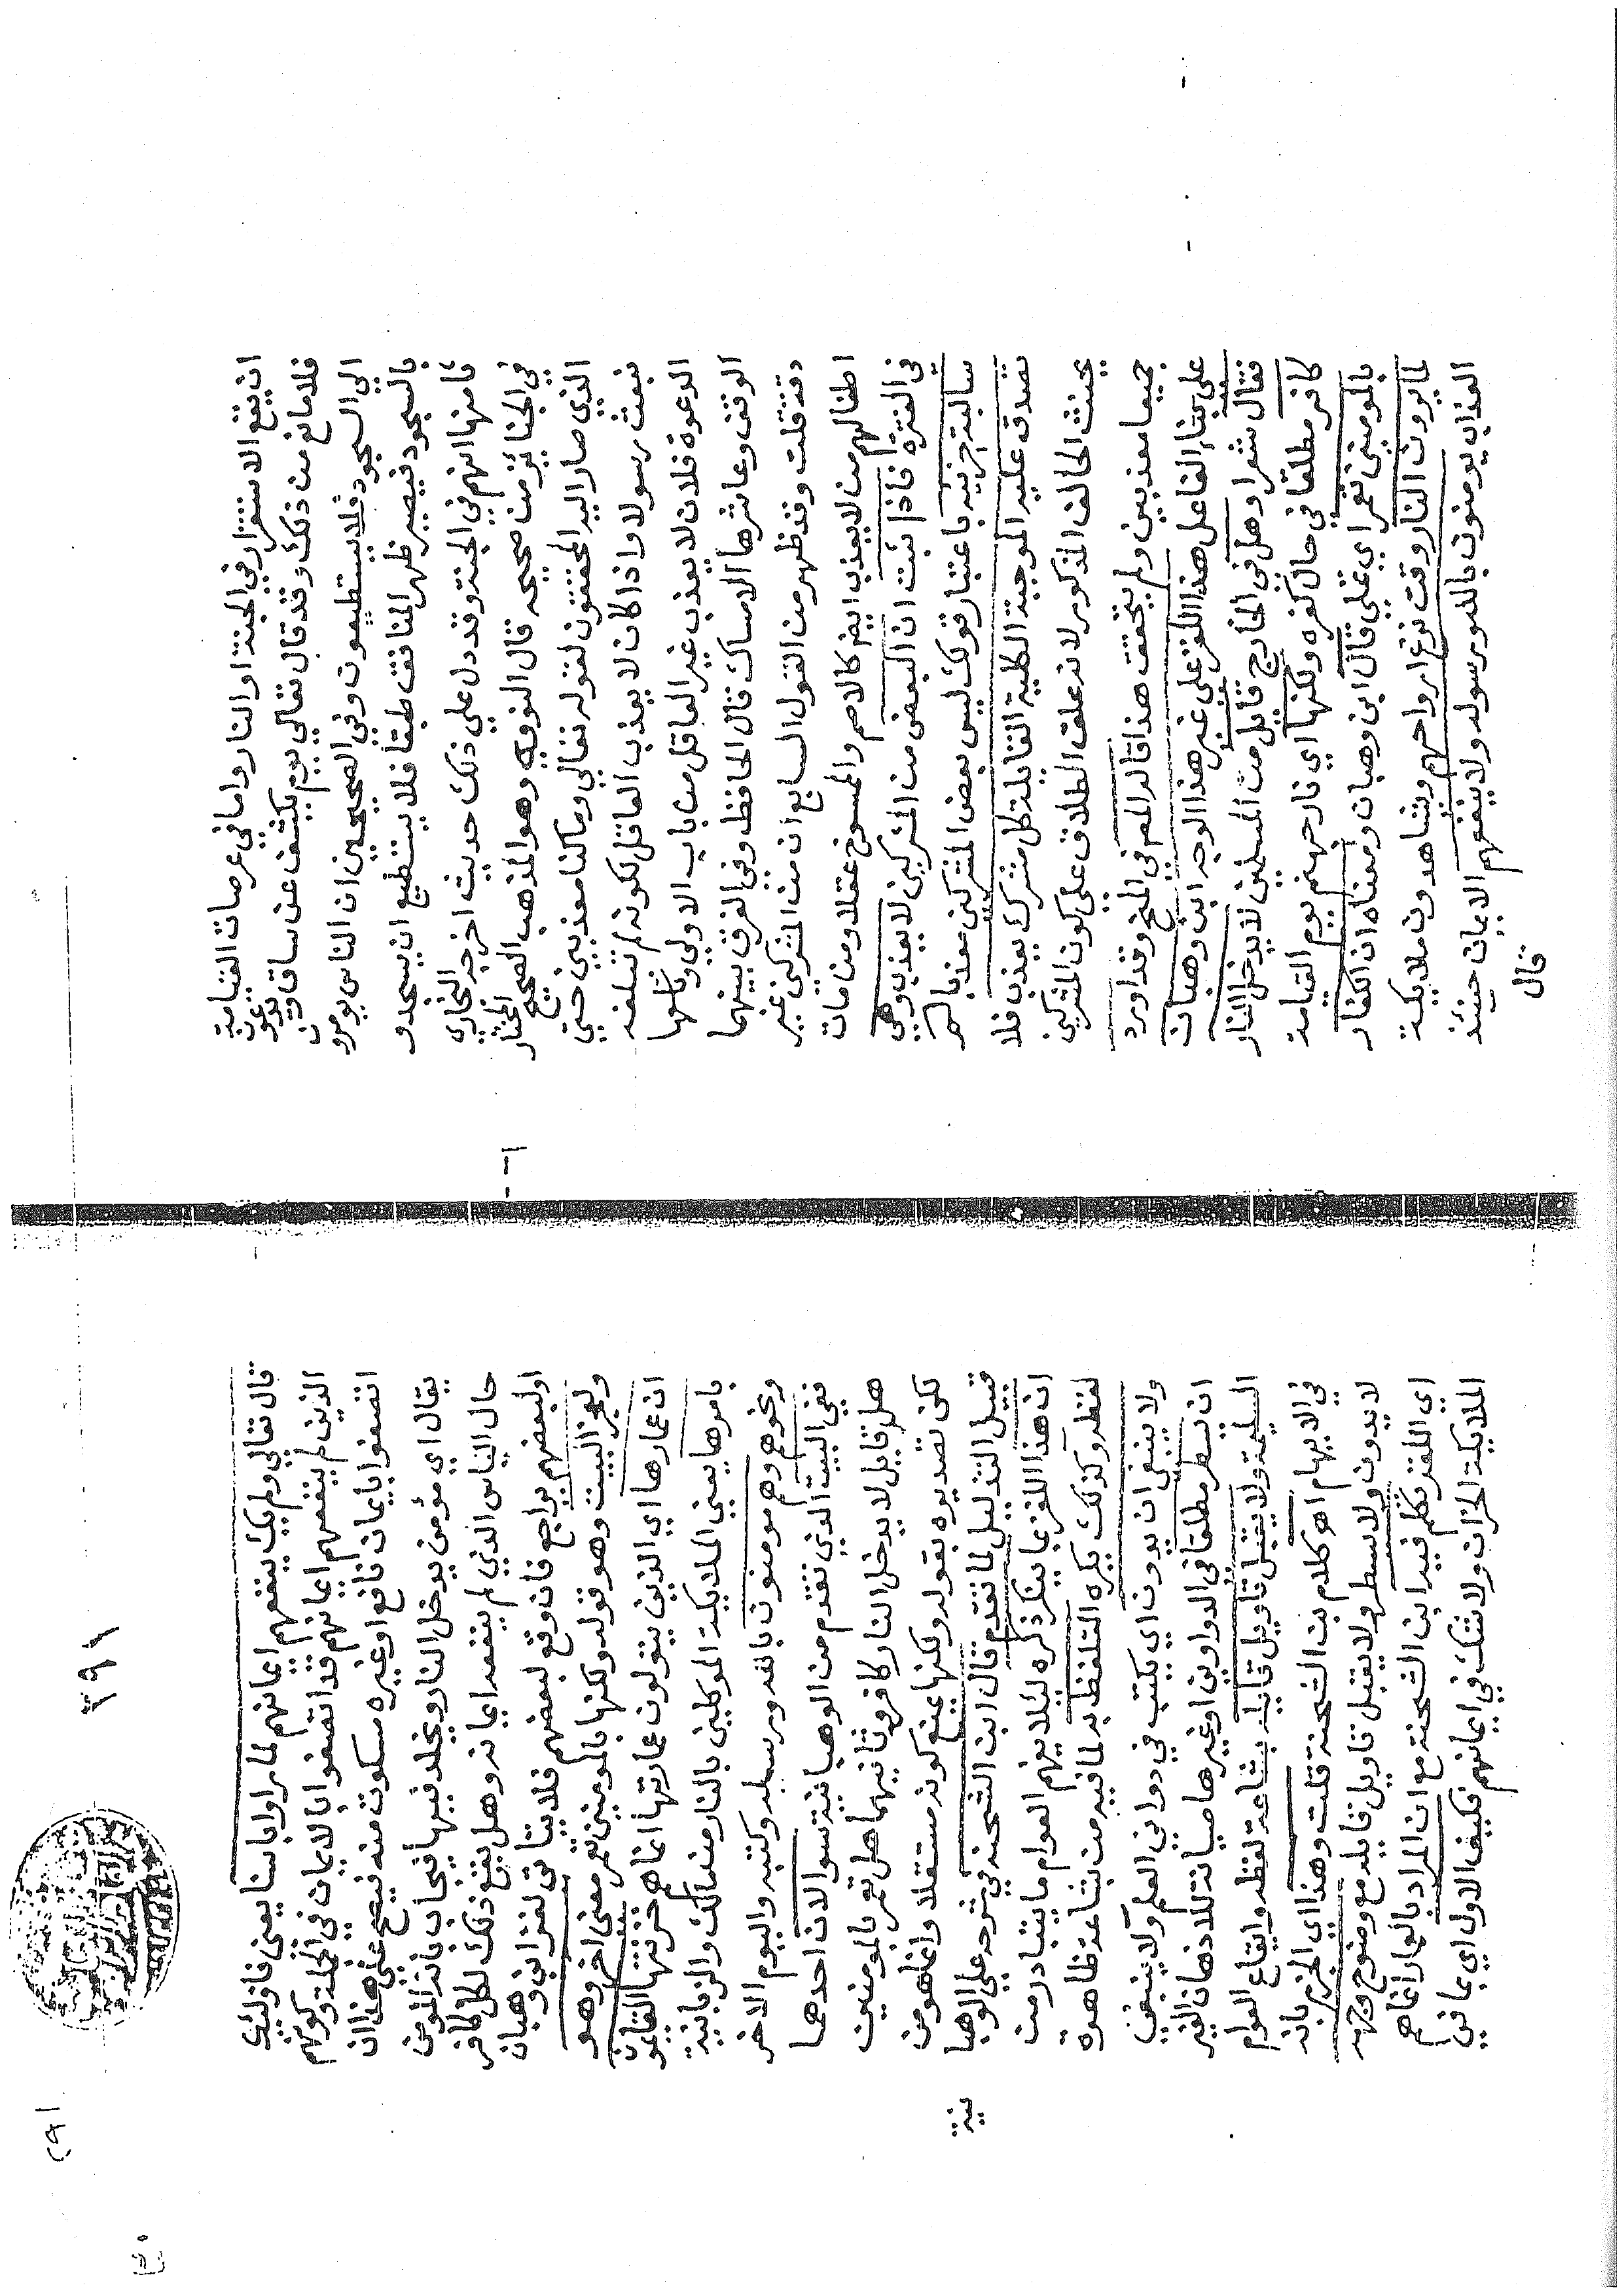 ان يقع الاستقرار في الجنة او النار واما في عرصات القيامة
فلا مانع من ذلك وقد قال تعالي يوم يكشف عن ساق ويدعون
الي السجود فلا يستطيعون وفي الصحيحين ان الناس يومرو
بالسجود فيصير ظهر المنافق طبقا فلا يستطيع ان يسجد و
ثامنها انهم في الجنة وقد دل علي ذلك حديث اخرجه البخاري
في الجنائز من صحيحه قال النووي وهو المذهب الصحيح المختار
الذي صار اليه المحققون لقوله تعالي وما كنا معذبين حتي
نبعث رسولا واذا كان لا يعذب العاقل لكونه لم تبلغه
الدعوة فلان لا يعذب غير العاقل من باب الاولي وتاسعها
الوقف وعاشرها الامساك قال الحافظ وفي الفرق بينهما
دقة قلت وقد ظهر من القول السابع ان من المشركين غير
اطفالهم من لا يعذب ايضا كالاصم والمسوخ عقلا ومن مات
في الفترة فاذا ثبت ان البعض من المشركين لا يعذب وهي
سالبة جزئية باعتبار قولك ليس بعض المشركين معذبا لم
تصدق عليه الموجبة الكلية القايلة كل مشرك يعذب فلا
يحنث الحالف المذكور لانه علق الطلاق علي كون المشركين
جميعا معذبين ولم يتحقق هذا قاله المص في المنح وقد اورد
علي بناء الفاعل هذا اللغز علي غير هذا الوجه ابن وهبان
فقال شعرا وهل في الخارج قايل من المسلمين لا يدخل النار
كافر مطلقا في حال كفره ولكنها اي نار جهنم يوم القيامة
بالمومنين تعمر اي تملي قال ابن وهبان ومعناه ان الكفار
لما يرون النار وقت نزع ارواحهم وتشاهدون ملايكة
العذاب يومنون بالله ورسوله ولا ينفعهم الايمان حينئذ
قال
قال تعالي ولم يك ينفعهم ايمانهم لما راوا باسنا يعني فاوليك
الذين لم ينفعهم ايمانهم قد اتصفوا بالايمان في الجملة وكونهم
اتصفوا بايمان نافع او غيره سكوت منه فيصح علي هذا ان
يقال اي مؤمن يدخل النار ويخلد فيها فيجاب بانه المومن
حال الياس الذي لم ينفعه ايمانه وهل يقع ذلك لكل كافر
او لبعضهم يراجع فان وقع لبعضهم فلا يتاتي لغز ابن وهبان
ولغز البيت وهو قوله ولكنها بالمومنين تعمر معني اخر وهو
ان عمارها اي الذين يتولون عمارتها انما هم خزنتها القايمون
بامرها يعني الملايكة الموكلين بالنار منه مالك والزبانية
ونحوهم وهم مومنون بالله ورسله وكتبه واليوم الاخر
ففي البيت الذي تقدم من الوهبانية سوالان احدهما
هل قايل لا يدخل النار كافر وثانيهما هل تعمر بالمومنين
لكن تصديره بقوله ولكنها يمنع كونه مستقلا وانما هو من
قبيل التذليل لما تقدم قال ابن الشحنه في شرحه علي الوهبا
نية
ان هذا اللغز مما ينكر ذكره لئلا يفهم العوام ما يتبادر من
لفظه وكذلك يكره التلفظ به لما فيه من بشاعة ظاهره
ولا ينبغي ان يدون اي يكتب في دواوين العلم ولا ينبغي
ان تسطر مطلقا في الدواوين او غيرها صيانة للاذهان الغير
السليمة ولا يقبل تاويل قايله بشاعة لفظه وايقاع العوام
في الايهام اهـ كلام بن الشحنه قلت وهذا اي الجزم بانه
لا يدون ولا يسطر ولا يقبل تاويل قايله مع وضوح وجهه
اي اللغز تكلم فيه ابن الشحنة مع ان المراد بالعمار انما هم
الملايكة الخزان ولا شك في ايمانهم فكيف الاول اي بما في
٢٩١
٢٩١